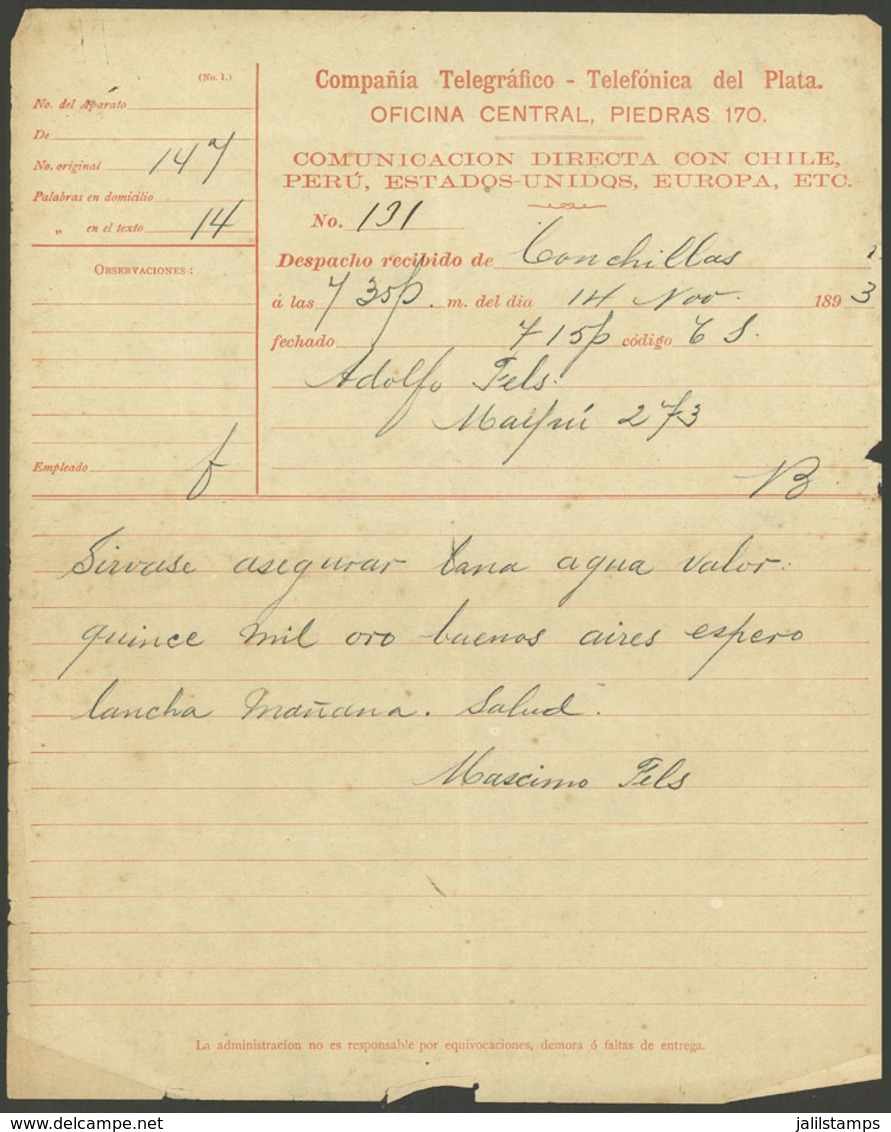 (No. 1.)
No. del Aparato
De
No. original 147
Palabras en domicilio
„ en el texto 14
OBSERVACIONES:
Empleado
Compañía Telegráfico - Telefónica del Plata.
OFICINA CENTRAL, PIEDRAS 170.
COMUNICACION DIRECTA CON CHILE,
PERÚ, ESTADOS-UNIDOS, EUROPA, ETC.
No. 191
Despacho recibido de Conchillas
á las 7 35 p. m. del dia 14 Nov. 1893
fechado 7 15 p código
Adolfo Fels.
Maypú 273
B
Sirvase asegurar lana agua valor
quince mil oro buenos aires espero
lancha mañana. Salud.
Mascimo Fels
La administracion no es responsable por equivocaciones, demora ó faltas de entrega.
www.delcampe.net
jalilstamps